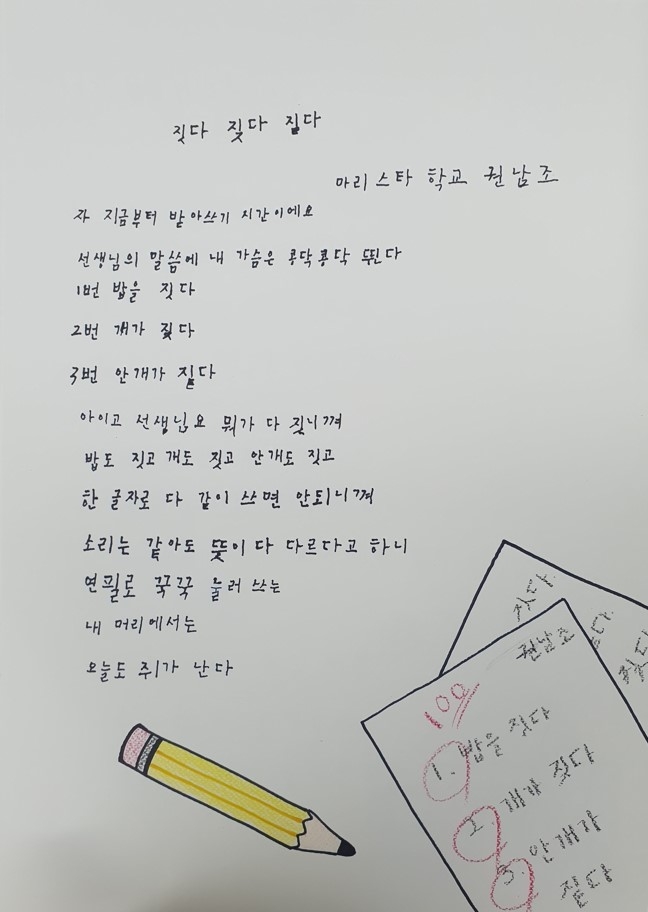 짓다 짖다 짙다
마리스타 학교 권남조
자 지금부터 받아쓰기 시간이에요
선생님의 말씀에 내 가슴은 콩닥콩닥 뛴다
1번 밥을 짓다
2번 개가 짖다
3번 안개가 짙다
아이고 선생님요 뭐가 다 짓니껴
밥도 짓고 개도 짓고 안개도 짓고
한 글자로 다 같이 쓰면 안되니껴
소리는 같아도 뜻이 다 다르다고 하니
연필로 꾹꾹 눌러 쓰는
내 머리에서는
오늘도 쥐가 난다
짓다
짖다
권남조
100
1. 밥을 짓다
2. 개가 짖다
3. 안개가
짙다